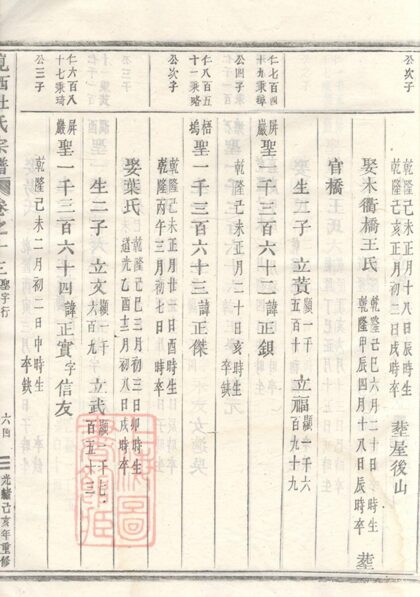 公次子
乾隆己亥正月初八日亥時生
乾隆 七月初六日戌時卒
葬屋後山
娶木衢橋王氏
乾隆己巳六月二十日 時生
乾隆甲辰四月十八日辰時卒
葬
官橋
生二子
立黃 顯一千
五百十
立福 顯一千六
百九十九
仁七百四
十九乘
公四子
屏巖
聖一千三百六十二 諱正銀
乾隆己未正月二十日亥時生
卒缺
仁八百五
十一乘略
公次子
梧塢
聖一千三百六十三 諱正傑
乾隆己未正月廿三日酉時生
乾隆丙午三月初七日 時卒
娶葉氏
乾隆己巳三月初三日卯時生
道光乙酉十二月初八日戌時卒
生二子
立文 顯一千
六百九
立武 顯一千七
百五十三
仁六百八
十七乘琦
公三子
屏巖
聖一千三百六十四 諱正實 字信友
乾隆己未二月初二日申時生
卒缺
范西杜氏宗譜
卷之十三
聖字行
六四
光緒己亥年重修
圖